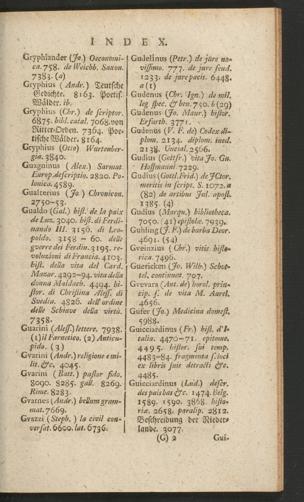 INDEX.
Gryphiander (Jo.) Oeconomi-
ca. 758. de Weichb. Saxon.
7383. (a)
Gryphius (Andr.) Teutsche
Gedichte. 8163. Poetis.
Wälder. ib.
Gryphius (Chr.) de scriptor.
6875. bibl. catal. 7068. von
Ritter-Orden. 7364. Poe-
tische Wälder. 8164.
Gryphius (Ott.) Wurtember-
gia. 3840.
Guagninus (Alex.) Sarmat.
Europ. descriptio. 2820. Po-
lonica. 4589.
Gualterius (Jo.) Chronicon.
2750-53.
Gualdo (Gal.) hist. de la paix
de Lun. 3040. hist. di Ferdi-
nando III. 3156. di Leo-
poldo. 3158 - 60. delle
guerre dei Ferdin. 3195. re-
voluzioni di Francia. 4103.
hist. della vita del Card.
Mazar. 4292-94. vita della
donna Maldach. 4494. hi-
stor. di Christina Aless. di
Svedia. 4826. dell' ordine
delle Schiave della virtù.
7358.
Guarini (Aless.) lettere. 7938.
(1) il Farnetico, (2) Anticu-
pido. (3)
Guarini (Andr.) religione e mi-
lit. &c. 4045.
Guarini (Batt.) pastor fido.
8090. 8285. gall. 8269.
Rime. 8283.
Gvarnes (Andr.) bellum gram-
mat. 7669.
Gvazzi (Steph.) la civil con-
versat. 6600. lat. 6736.
Gudelinus (Petr.) de jure no-
vissimo. 777. de jure feud.
1233. de jure pacis. 6448.
a (1)
Gudenus (Chr. Ign.) de mil.
leg spec. & ben. 790. b (29)
Gudenus (Jo. Maur.) histor.
Erfurth. 3771.
Gudenus (V. F. de) Codex di-
plom. 2134. diplom. ined.
2138. Uncial. 2566.
Gudius (Gottfr.) vita Jo. Gu.
Hoffmanni 7229.
Gudius (Gottl. Frid.) de JCtor.
meritis in script. S. 1072. a
(82) de artibus Jul. apost.
1385. (4)
Gudius (Marqu.) bibliotheca.
7050. (41) epistolæ. 7939.
Guhling (J. F.) de barba Deor.
4691. (54)
Greinzius (Chr.) vitæ histo-
rica. 7496.
Guerickem (Jo. Wilh.) Schoe-
tel, continuat. 707.
Grevara (Ant. de) horol. prin-
cip. s. de vita M. Aurel.
4656.
Gufer (Jo.) Medicina domest.
5988.
Guicciardinus (Fr.) hist. d'I-
talia. 4470-71. epitome.
4495. histor. sui temp.
4483-84. fragmenta s. loci
ex libris suis detracti &c.
4485.
Guicciardinus (Lud.) descr.
des païs bas &c. 1474. belg.
1589. 1590. 3868. histo-
riæ. 2658. paralip. 2812.
Beschreibung der Nieder-
lande. 3077.
(G) 2 Gui-